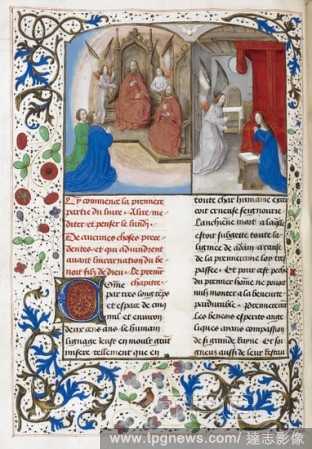 Cy commence la premiere
partie du liure. A lire me
diter et penser le lundj.
De aucunes choses prece
dentes et qui aduindrent
auant lincarnation du be
noit filz de dieu. Le premier
chapitre.
Comme
par tres long temps
et espace de cinq
mil et enuiron
deux cens ans. le humain
lignage feust en moult grant
misere tellement que en
toute char humaine exer
coit crueuse seignourie
lancienne mort a laquelle
estoit subgette toute la
lignee de adam a cause
de la premeraine loy tres
passee. Et pour ceste peche
du premier home ne pouoit
nulz monter a la beneurte
pardurable. Premierement
Les benois esperis ange
liques aians compassion
de si grande ruyne Et soi
gneus aussi de leur restau
www.tpgnews.com/達志影像